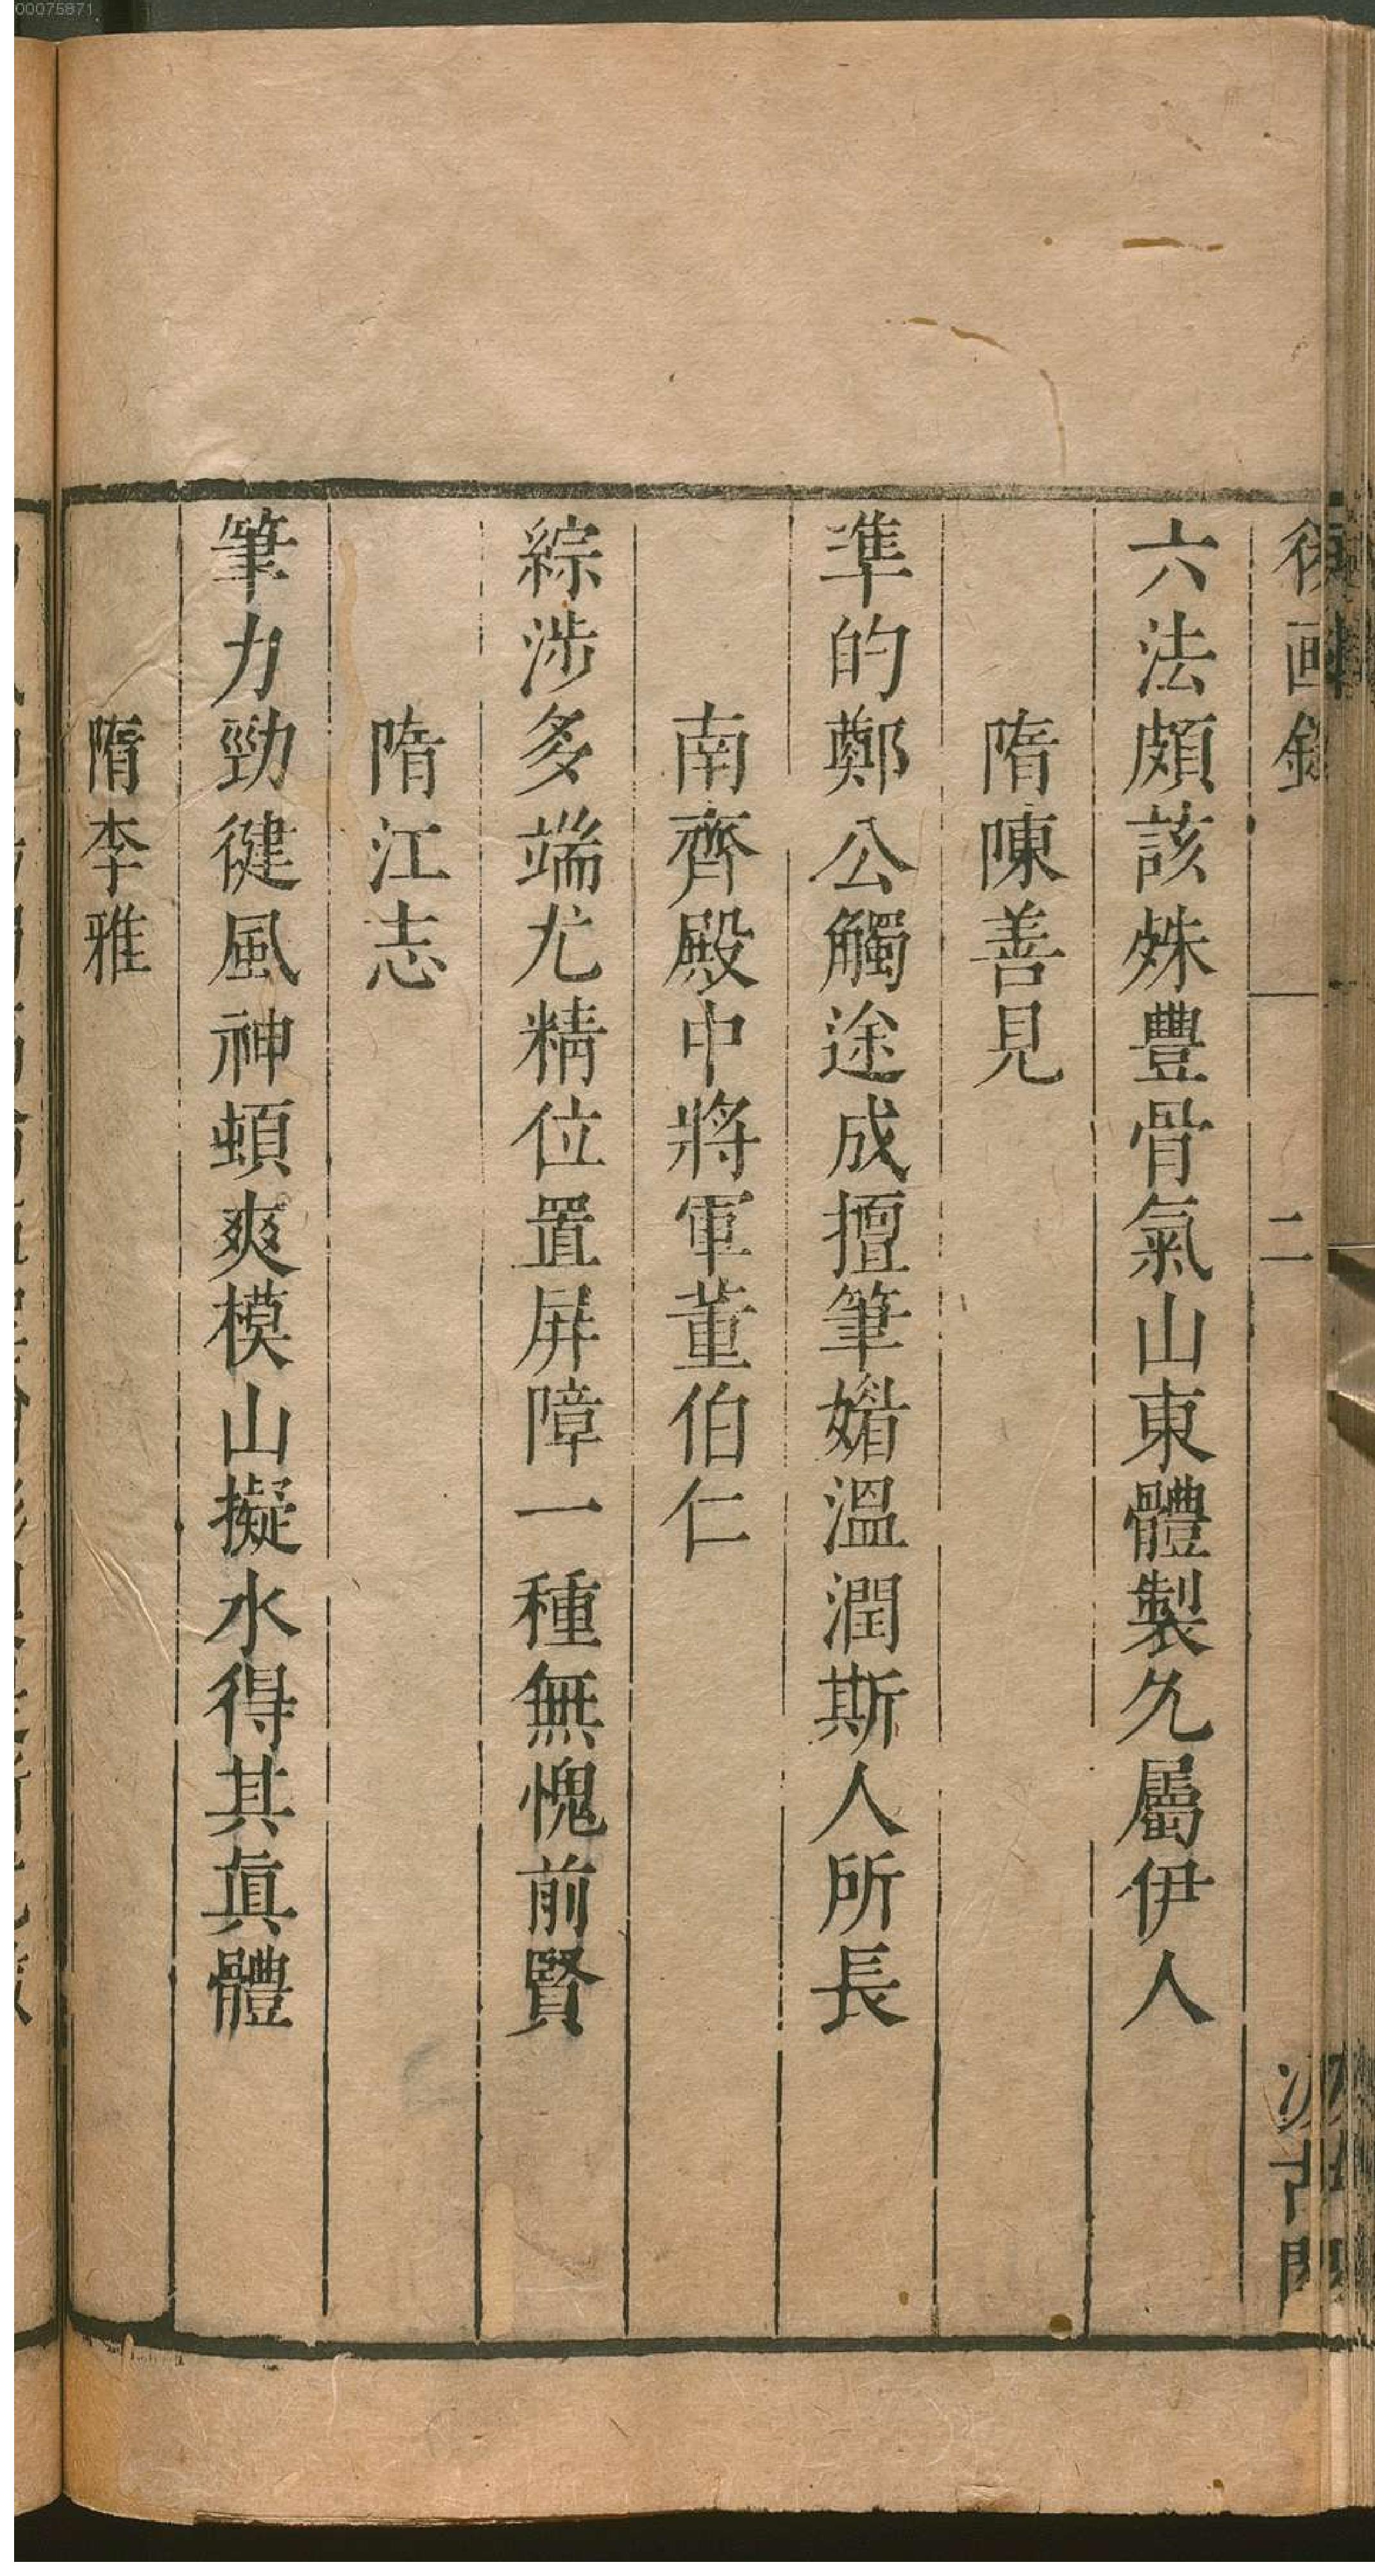 00075871
後画錄 二 汲古閣
六法頗該殊豊骨氣山東體製久屬伊人
隋陳善見
準的鄭公觸途成擅筆媚溫潤斯人所長
南齊殿中將軍董伯仁
綜涉多端尤精位置屏障一種無愧前賢
隋江志
筆力勁健風神頓爽模山擬水得其眞體
隋李雅